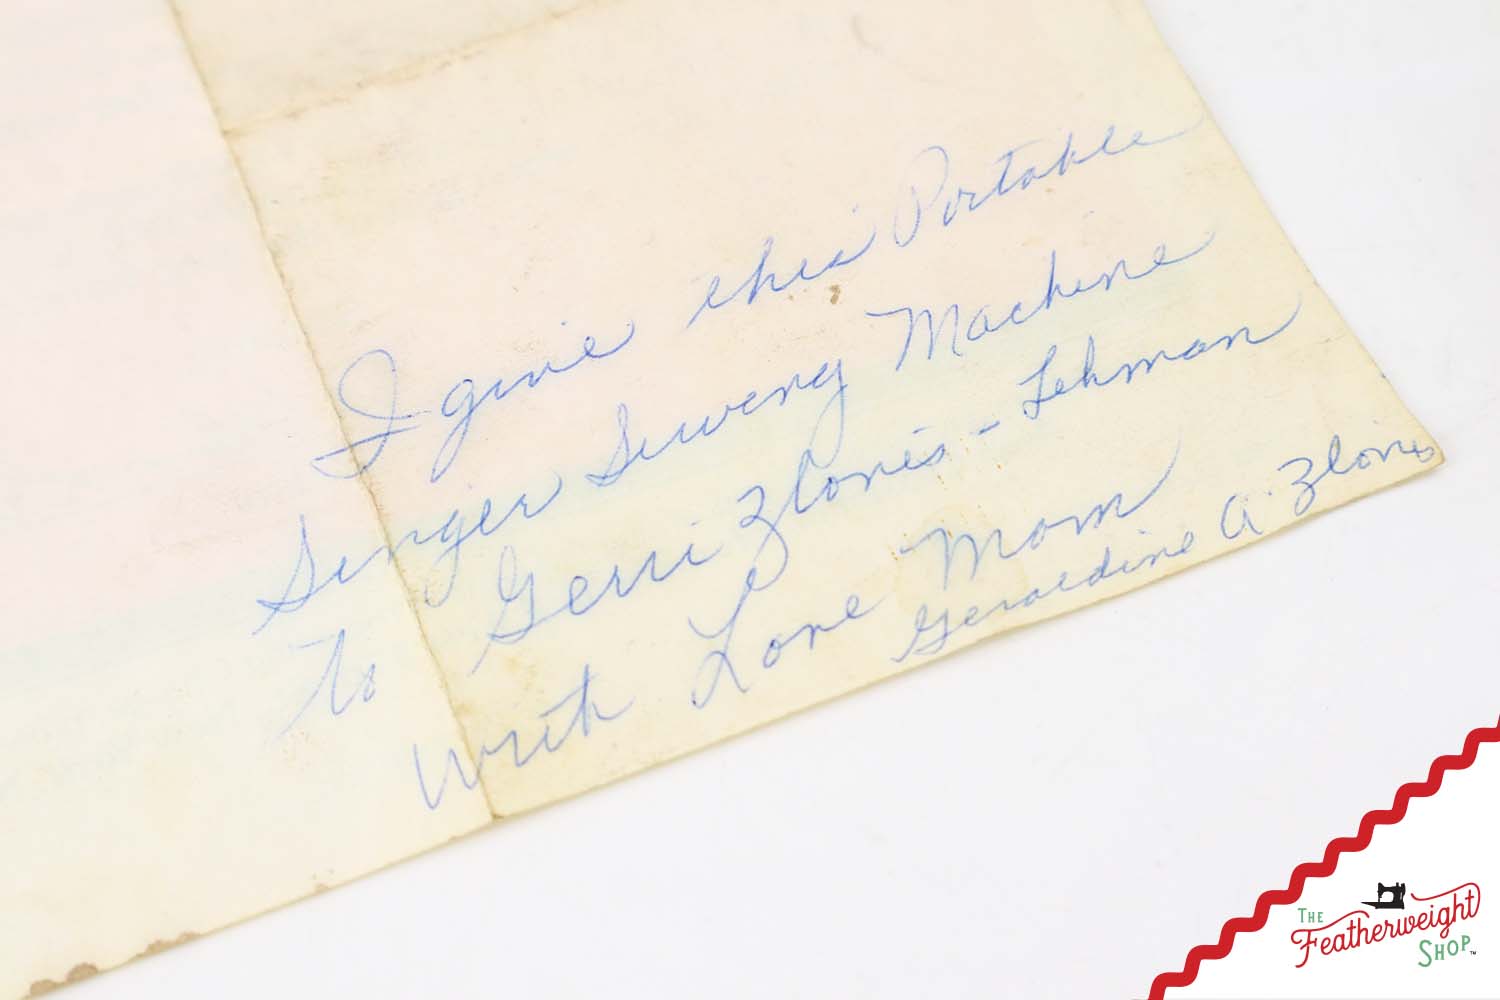 I give this Portable
Singer Sewing Machine
To Gerri Zlonis-Lehman
With Love Mom
Geraldine A. Zlonis
THE
Featherweight
SHOP™